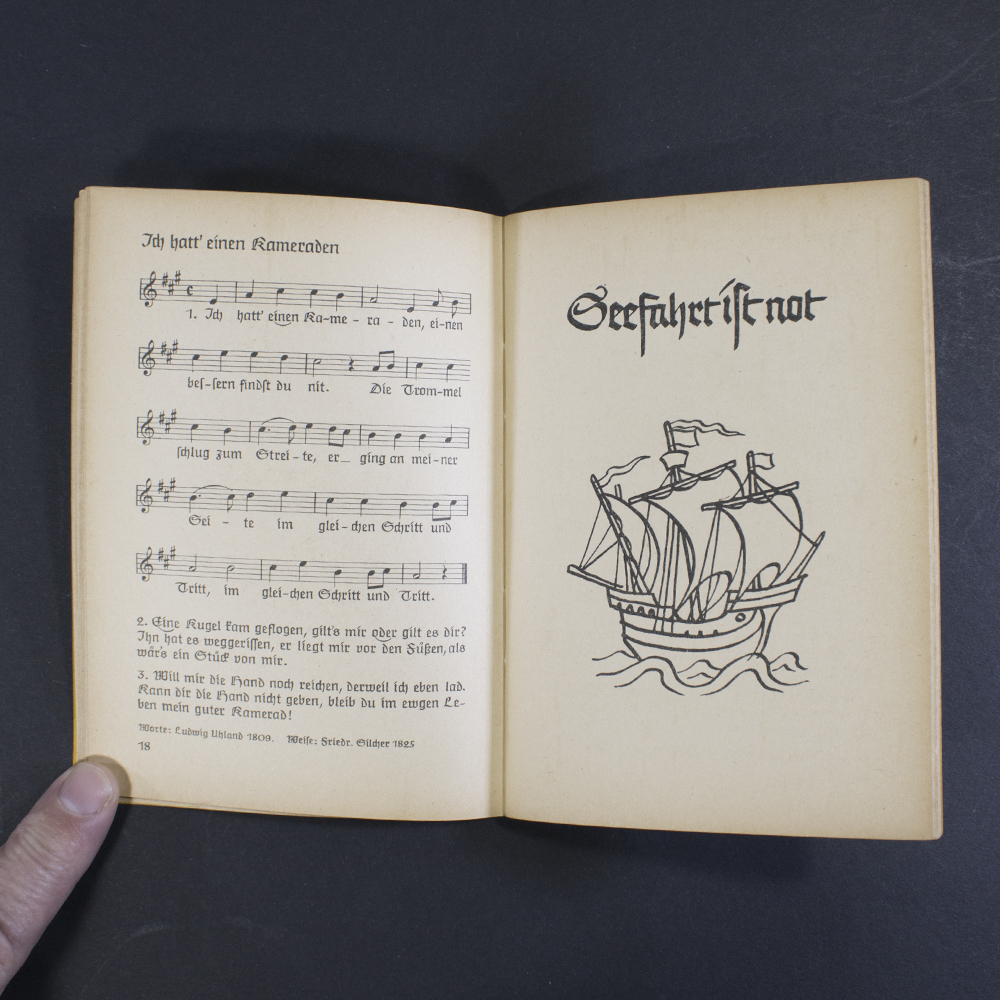 Ich hatt' einen Kameraden
1. Ich hatt' einen Ka-me - ra - den, ei-nen
bes-sern findst du nit. Die Trom-mel
schlug zum Strei-te, er_ ging an mei-ner
Sei - te im glei-chen Schritt und
Tritt, im glei-chen Schritt und Tritt.
2. Eine Kugel kam geflogen, gilt's mir oder gilt es dir?
Ihn hat es weggerissen, er liegt mir vor den Füßen, als
wär's ein Stück von mir.
3. Will mir die Hand noch reichen, derweil ich eben lad.
Kann dir die Hand nicht geben, bleib du im ewgen Le-
ben mein guter Kamerad!
Worte: Ludwig Uhland 1809. Weise: Friedr. Silcher 1825
18
Seefahrt ist not